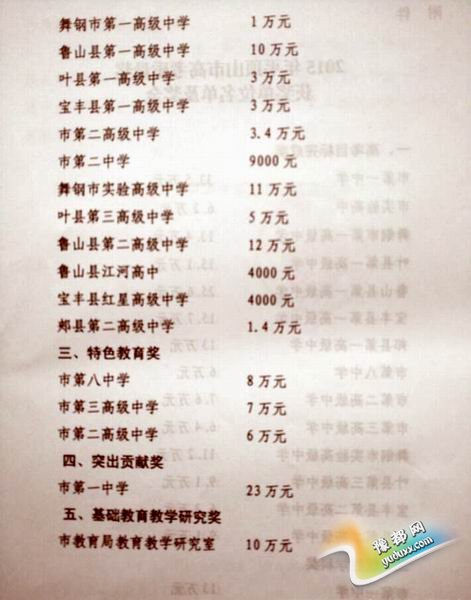 舞钢市第一高级中学 1万元
鲁山县第一高级中学 10万元
叶县第一高级中学 3万元
宝丰县第一高级中学 3万元
市第二高级中学 3.4万元
市第二中学 9000元
舞钢市实验高级中学 11万元
叶县第三高级中学 5万元
鲁山县第二高级中学 12万元
鲁山县江河高中 4000元
宝丰县红星高级中学 4000元
郏县第二高级中学 1.4万元
三、特色教育奖
市第八中学 8万元
市第三高级中学 7万元
市第二高级中学 6万元
四、突出贡献奖
市第一中学 23万元
五、基础教育教学研究奖
市教育局教育教学研究室 10万元
豫都网
yuduxx.com